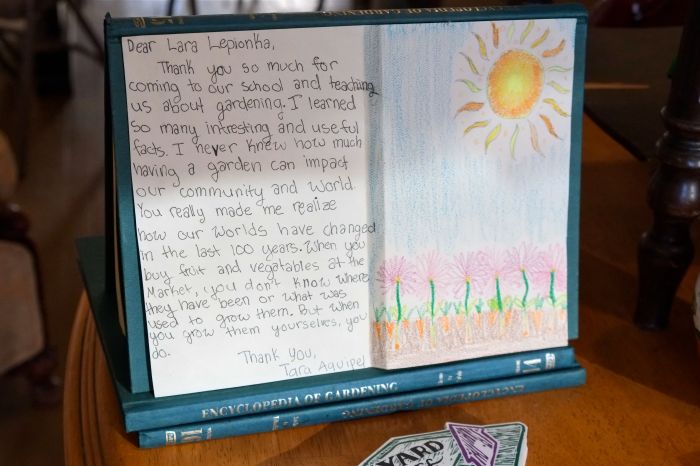 Dear Lara Lepionka,
Thank you so much for
coming to our school and teaching
us about gardening. I learned
so many intresting and useful
facts. I never knew how much
having a garden can impact
our community and world.
You really made me realize
how our worlds have changed
in the last 100 years. When you
buy fruit and vegatables at the
Market, you don't know where
they have been or what was
used to grow them. But when
you grow them yourselves, you
do.
Thank You,
Tara Aquipel
ENCYCLOPEDIA OF GARDENING
ENCYCLOPEDIA OF GARDENING
YARD